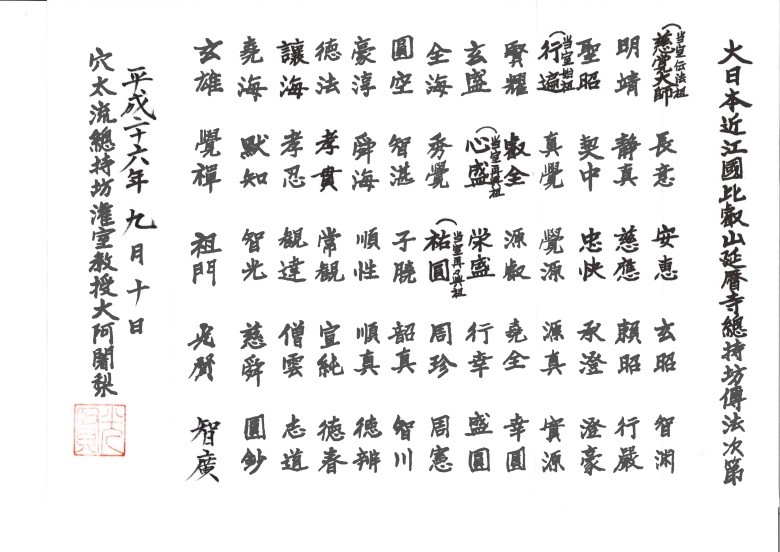 大日本近江國比叡山延暦寺總持坊傳法次第
(当室伝法祖)
慈覺大師 長意 安恵 玄昭 智淵
明靖 静真 慈應 頼昭 行嚴
聖昭 契中 忠快 承澄 澄豪
(当室始祖)
行遍 真覺 覺源 源真 實源
賢耀 叡全 源叡 堯全 幸圓
(当室再興祖)
玄盛 心盛 栄盛 行幸 盛圓
(当室再々興祖)
全海 秀覺 祐圓 周珍 周憲
圓空 智湛 子曉 韶真 智川
豪淳 舜海 順性 順真 徳辨
徳法 孝貫 常観 宣純 徳春
讓海 孝忍 観達 僧雲 志道
堯海 默知 智光 慈舜 圓鈔
玄雄 覺禪 祖門 光賢 智廣
平成二十六年 九月十日
穴太流總持坊灌室教授大阿闍梨
光賢